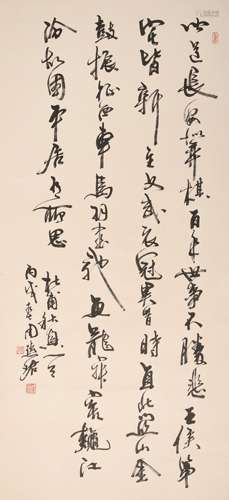 聞道長安似弈棋百年世事不勝悲王侯第
宅皆新主文武衣冠異昔時直北關山金
鼓振征西車馬羽書馳魚龍寂寞秋江
冷故國平居有所思
杜甫秋興
丙戌春周慧珺